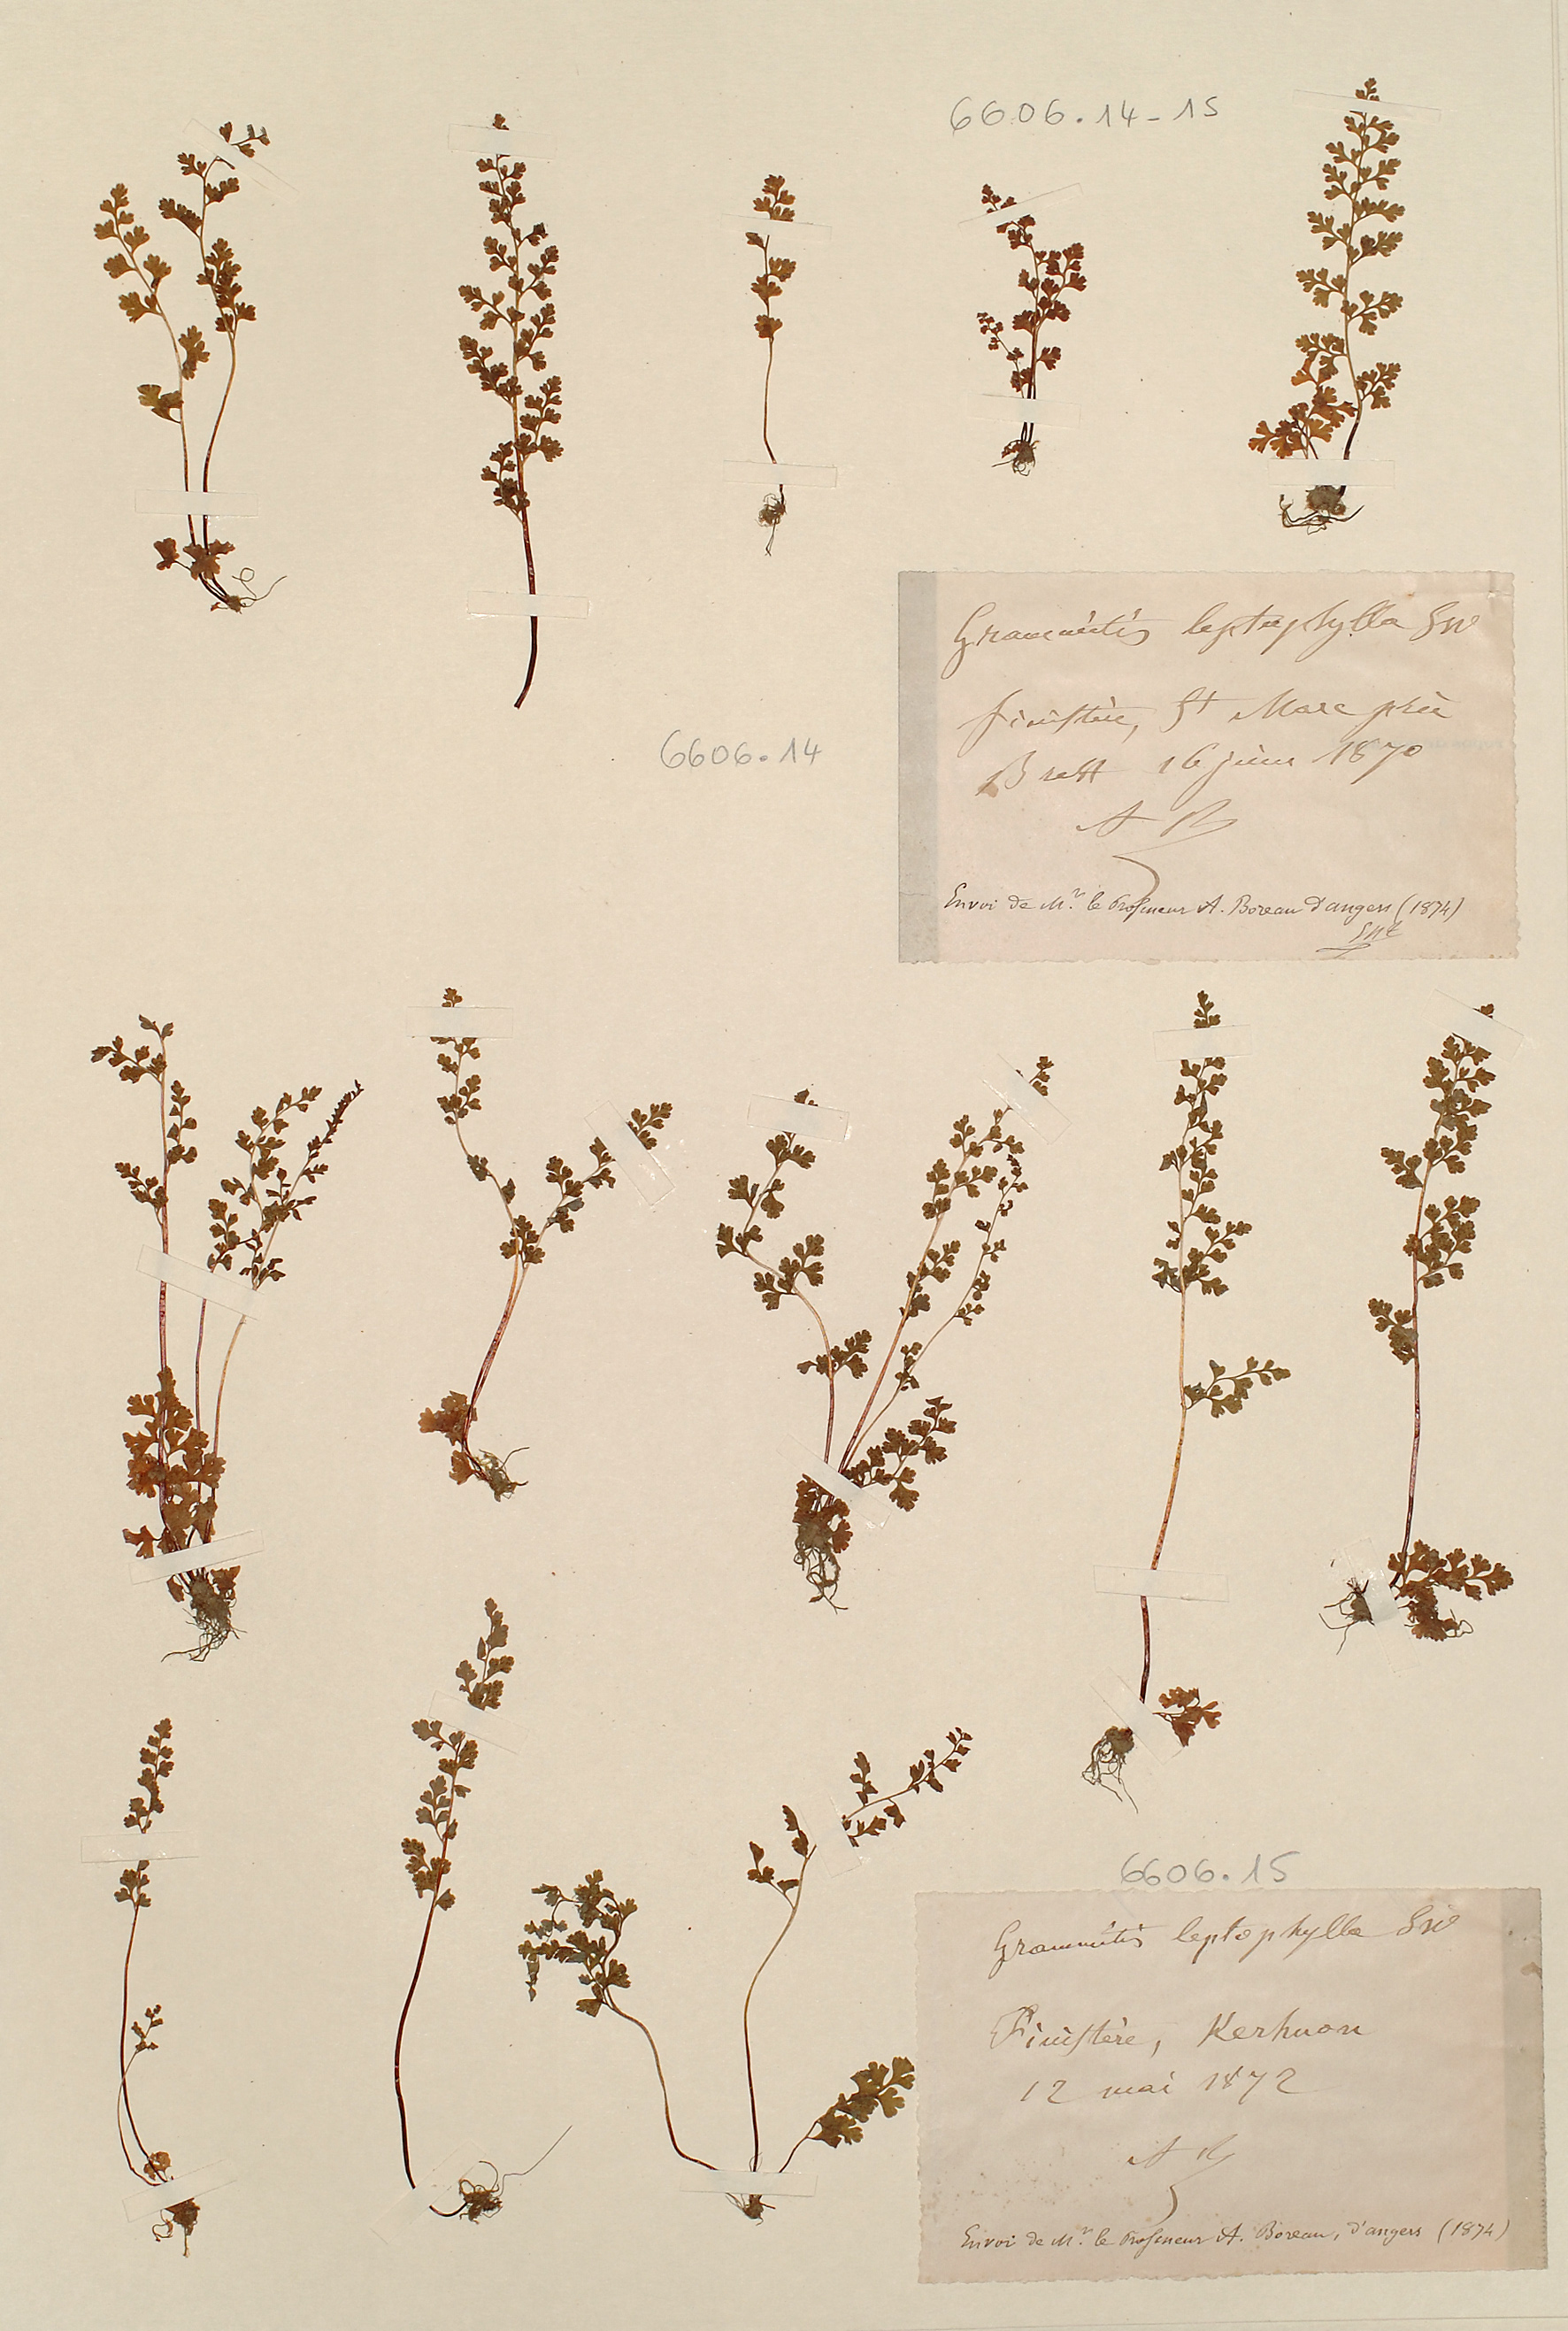 6606.14-15
Grammitis leptophylla Sw
finistère, St Marc près
Brest 16 juin 1870
Envoi de Mr. le Professeur A. Boreau d'angers (1874)
6606.14
6606.15
Grammitis leptophylla Sw
Finistère, Kerhuon
12 mai 1872
Envoi de Mr. le Professeur A. Boreau, d'angers (1874)